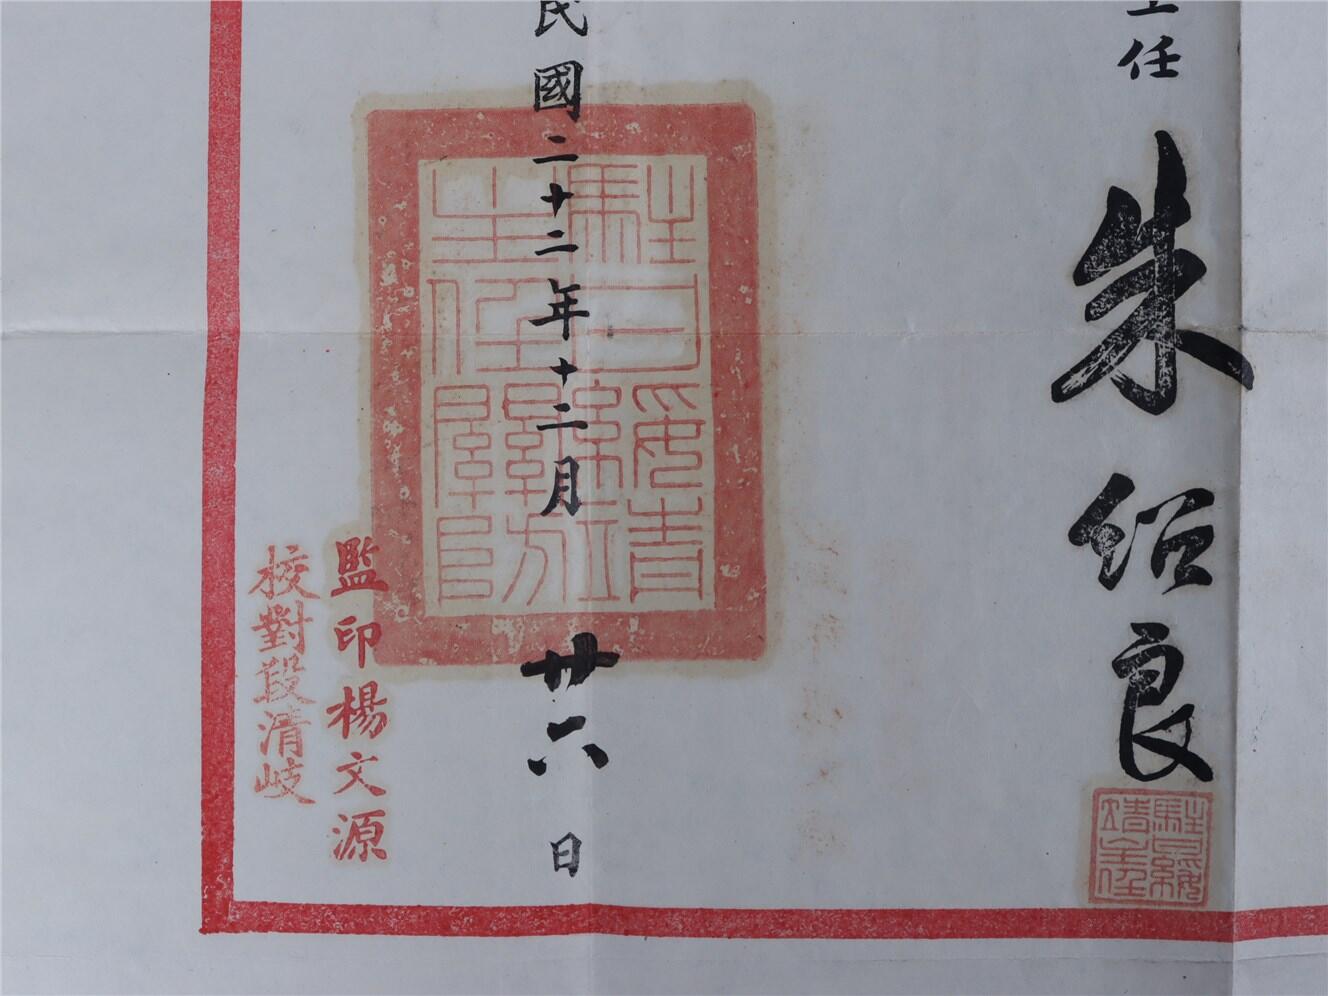 主任 朱紹良
駐甘綏
靖主任
駐甘綏靖
主任關防
民國二十二年十二月廿六日
監印楊文源
校對段清岐